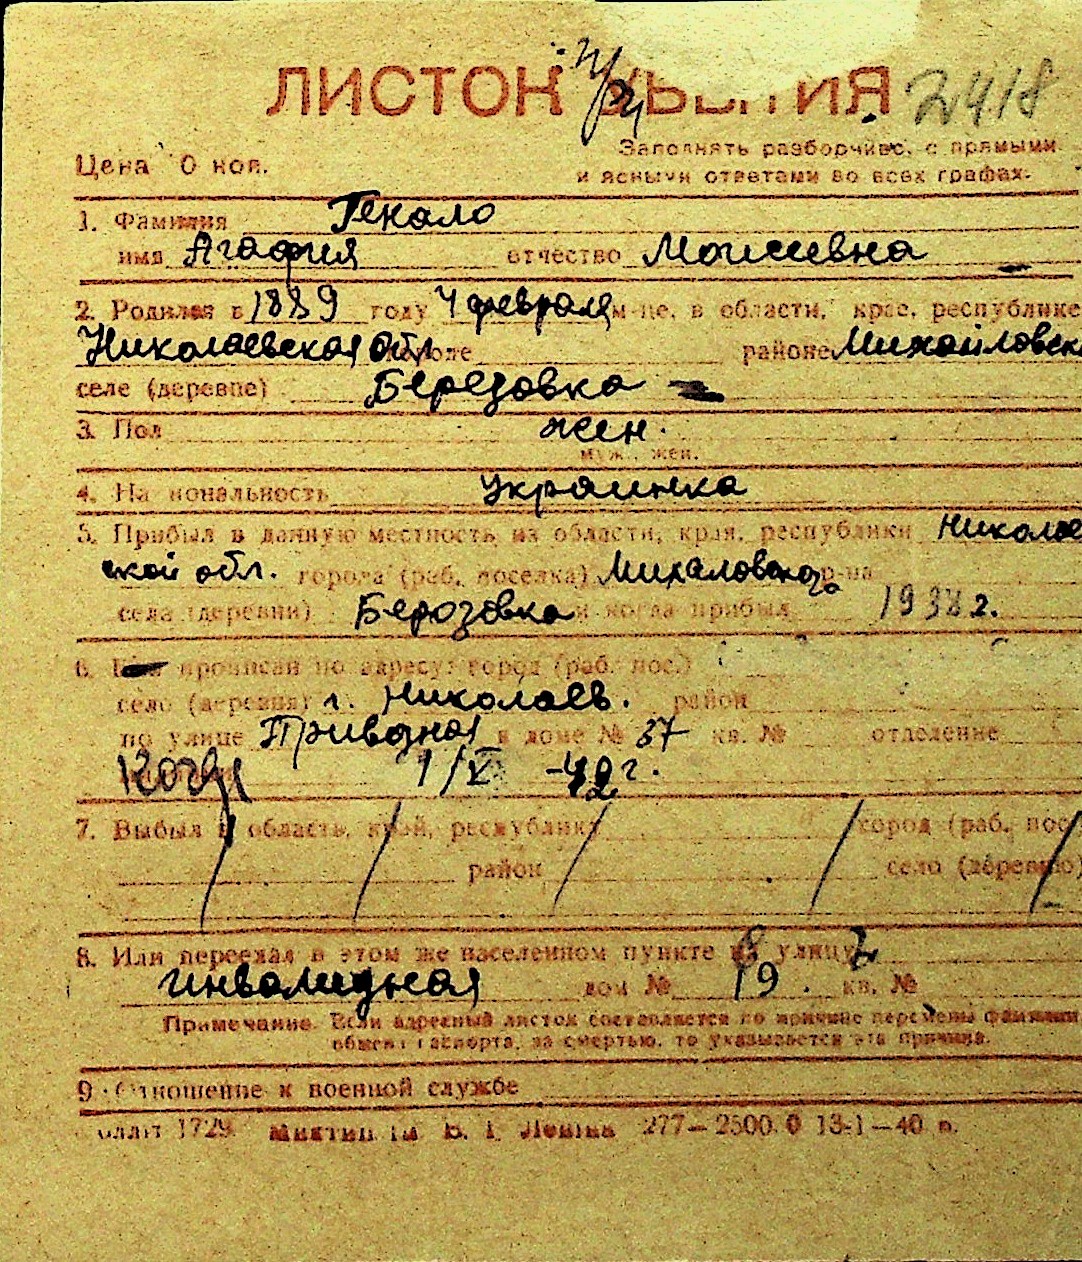 ЛИСТОК УБЫТИЯ 2418
Цена 10 коп.
Заполнять разборчиво, с прямыми
и ясными ответами во всех графах.
1. Фамилия Гекало
имя Агафия отчество Моисеевна
2. Родился в 1889 году 4 февраля м-це, в области, крае, республике
Николаевская обл. городе районе Михайловск
селе (деревне) Березовка
3. Пол жен.
муж., жен.
4. Национальность украинка
5. Прибыл в данную местность из области, края, республики Николаев
ской обл. города (раб. поселка) Михаловского р-на
села (деревни) Берозовка и когда прибыл 1938 г.
6. прописан по адресу: город (раб. пос.)
село (деревня) г. Николаев. район
по улице Приводная в доме № 37 кв. № отделение
Когда 1/V -42 г.
7. Выбыл в область, край, республику город (раб. пос
район село (деревню)
8. Или переехал в этом же населенном пункте на улицу
инвалидная дом № 19. кв. №
Примечание. Если адресный листок составляется по причине перемены фамилии
обмен паспорта, за смертью, то указывается эта причина.
9. Отношение к военной службе
1729 им В. И. Ленина 277—2500 0 13-1—40 п.